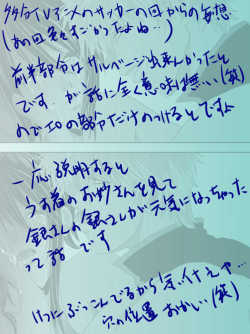 タタカイTVアニメのサッカーの回からの妄想…
(あの回色々すごかったよね…)
前半部分はサルベージ出来んかったと
です。が話に全く意味は無い(笑)
のでエロの部分だけのっけるとですよ
一応説明すると
うす着のお妙さんを見て
銀さんの銀さんが元気になっちゃった
って話です
けつにぶっこんでるから気ィ付えや…
穴の位置おかしい(笑)